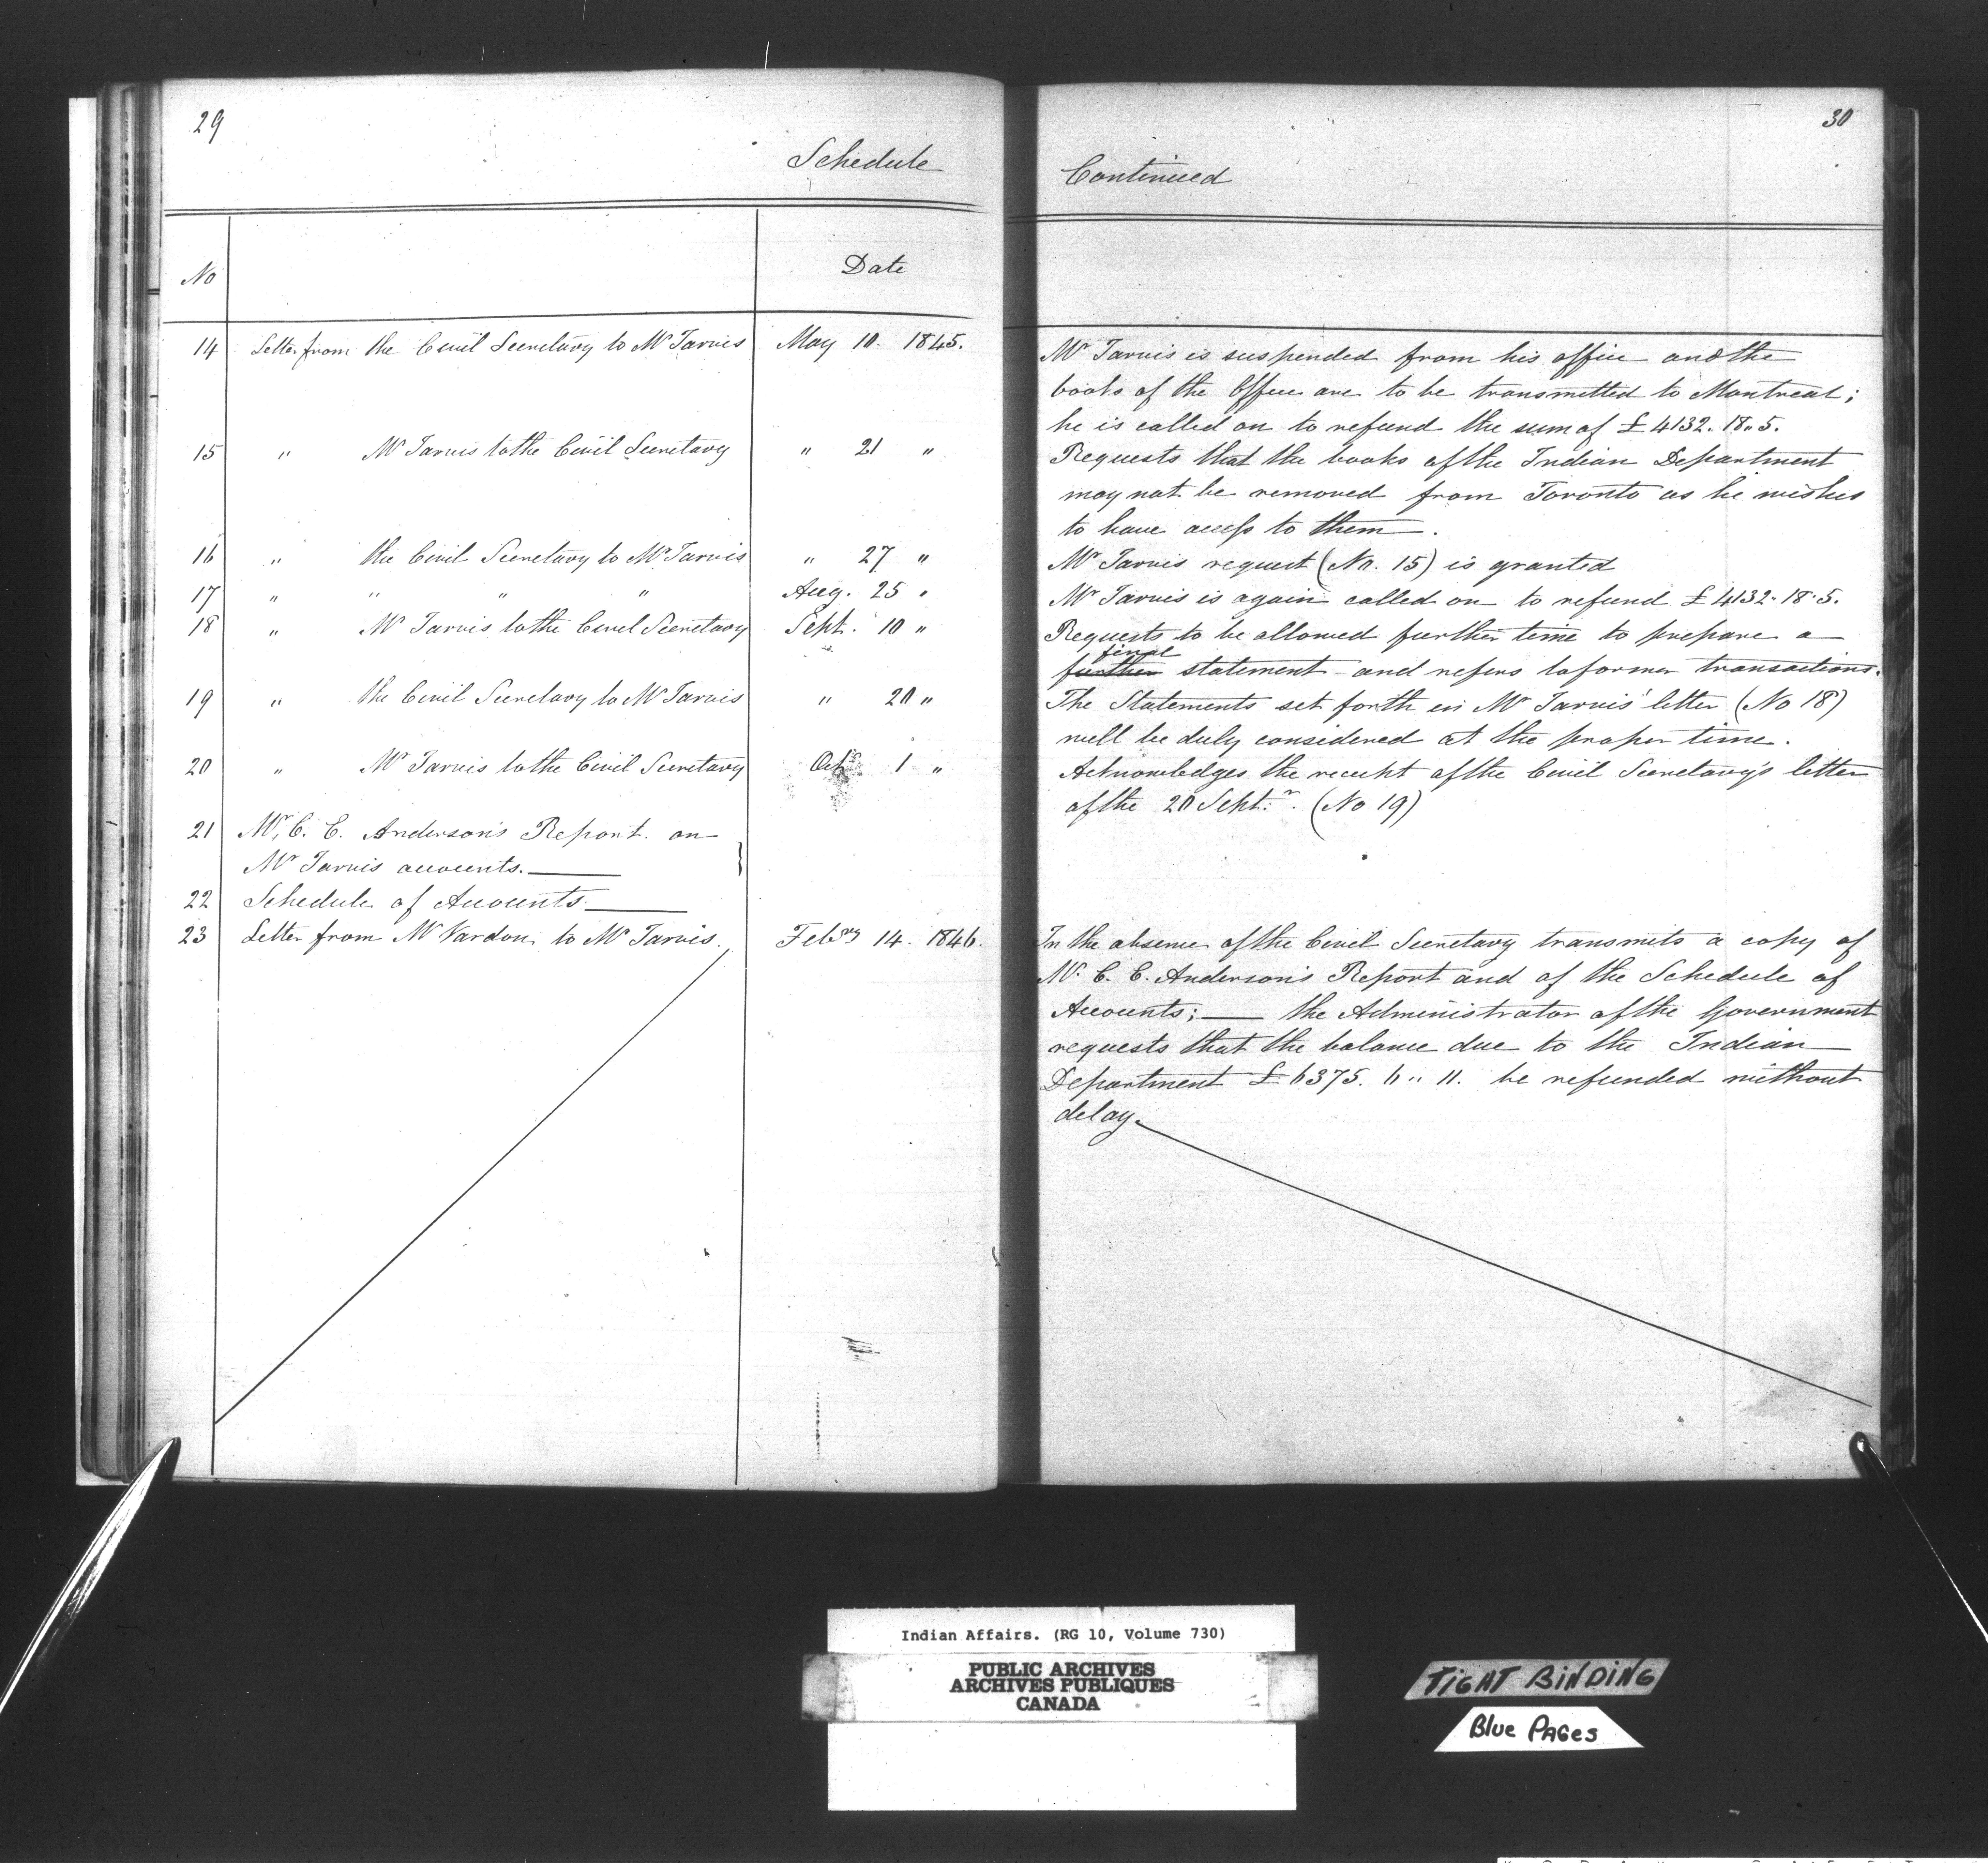 29
Schedule
No
Date
14 Letter from the Civil Secretary to Mr Jarvis May 10. 1845.
15 " Mr Jarvis to the Civil Secretary " 21 "
16 " the Civil Secretary to Mr Jarvis " 27 "
17 " " " " Aug. 25 "
18 " Mr Jarvis to the Civil Secretary Sept. 10 "
19 " the Civil Secretary to Mr Jarvis " 20 "
20 " Mr Jarvis to the Civil Secretary Octr 1 "
21 Mr. C. E. Anderson's Report on
Mr Jarvis accounts.
22 Schedule of Accounts
23 Letter from Mr Vardon to Mr Jarvis. Febry 14. 1846.
30
Continued
Mr Jarvis is suspended from his office and the
books of the Office are to be transmitted to Montreal;
he is called on to refund the sum of £4132. 18.. 5.
Requests that the books of the Indian Department
may not be removed from Toronto as he wishes
to have access to them.
Mr Jarvis request (No. 15) is granted
Mr Jarvis is again called on to refund £4132. 18. 5.
Requests to be allowed further time to prepare a
final
further statement - and refers to former transactions.
The Statements set forth in Mr Jarvis' letter (No 18)
will be duly considered at the proper time.
Acknowledges the receipt of the Civil Secretary's letter
of the 20 Sept.r. (No 19)
In the absence of the Civil Secretary transmits a copy of
Mr. C. E. Anderson's Report and of the Schedule of
Accounts; — the Administrator of the Government
requests that the balance due to the Indian
Department £6375. 6.. 11. be refunded without
delay.
Indian Affairs. (RG 10, Volume 730)
PUBLIC ARCHIVES
ARCHIVES PUBLIQUES
CANADA
TIGHT BINDING
Blue PAGes